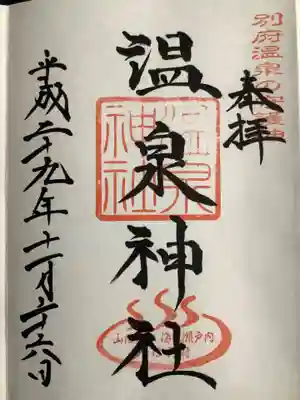 別府温泉の守護神
奉拝
温泉神社
温泉
神社
瀬戸内
平成二十九年十一月二十六日